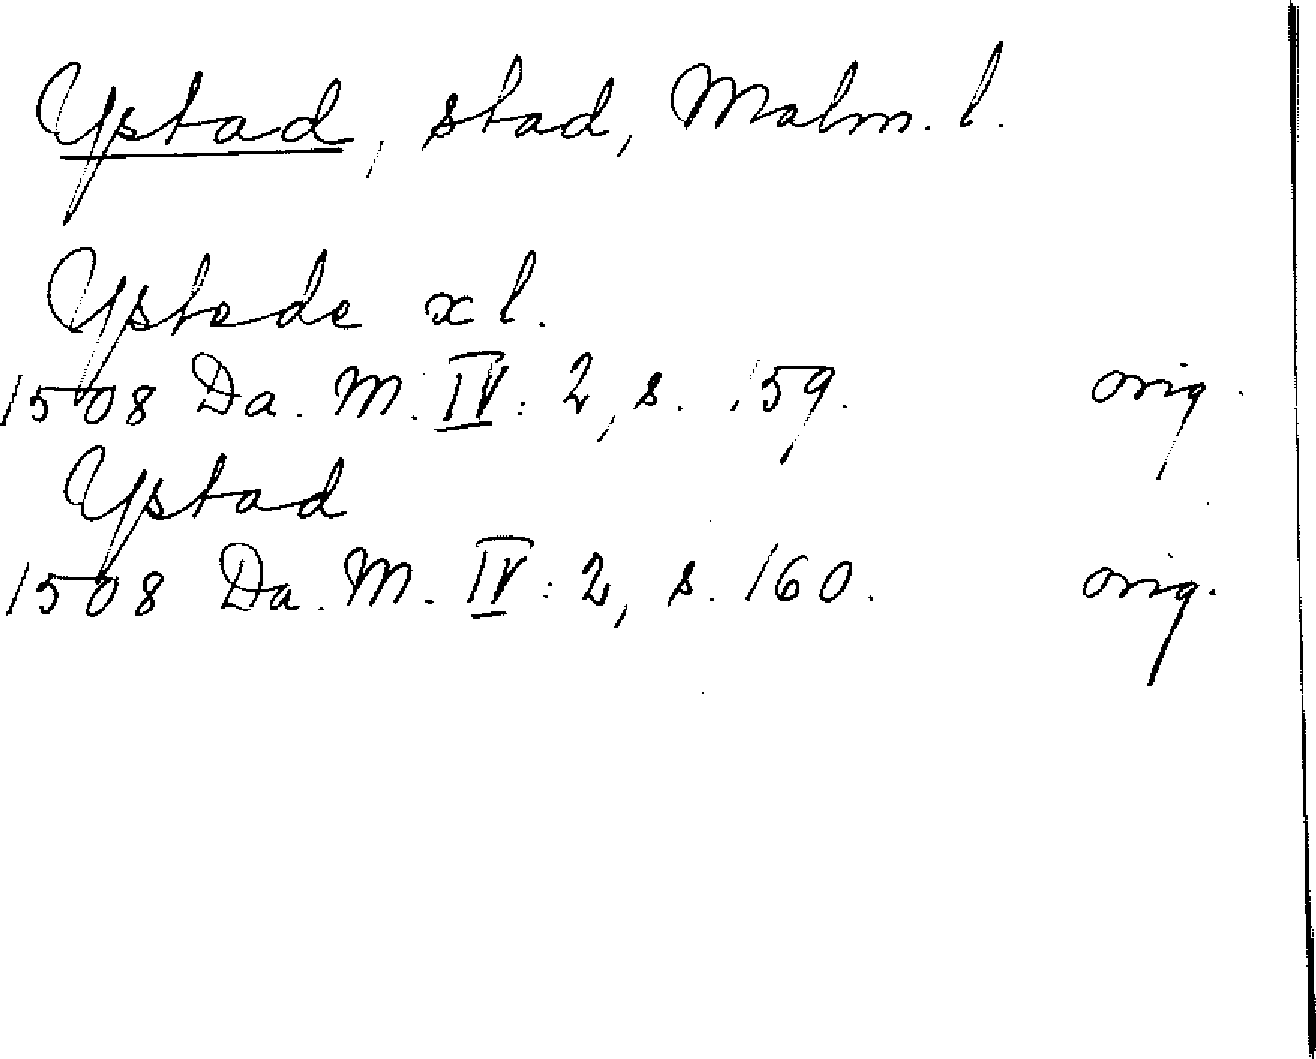 Ystad, stad, Malm. l.
Ystede xl.
1508 Da. M. IV: 2, s. 159. orig.
Ystad
1508 Da. M. IV: 2, s. 160. orig.